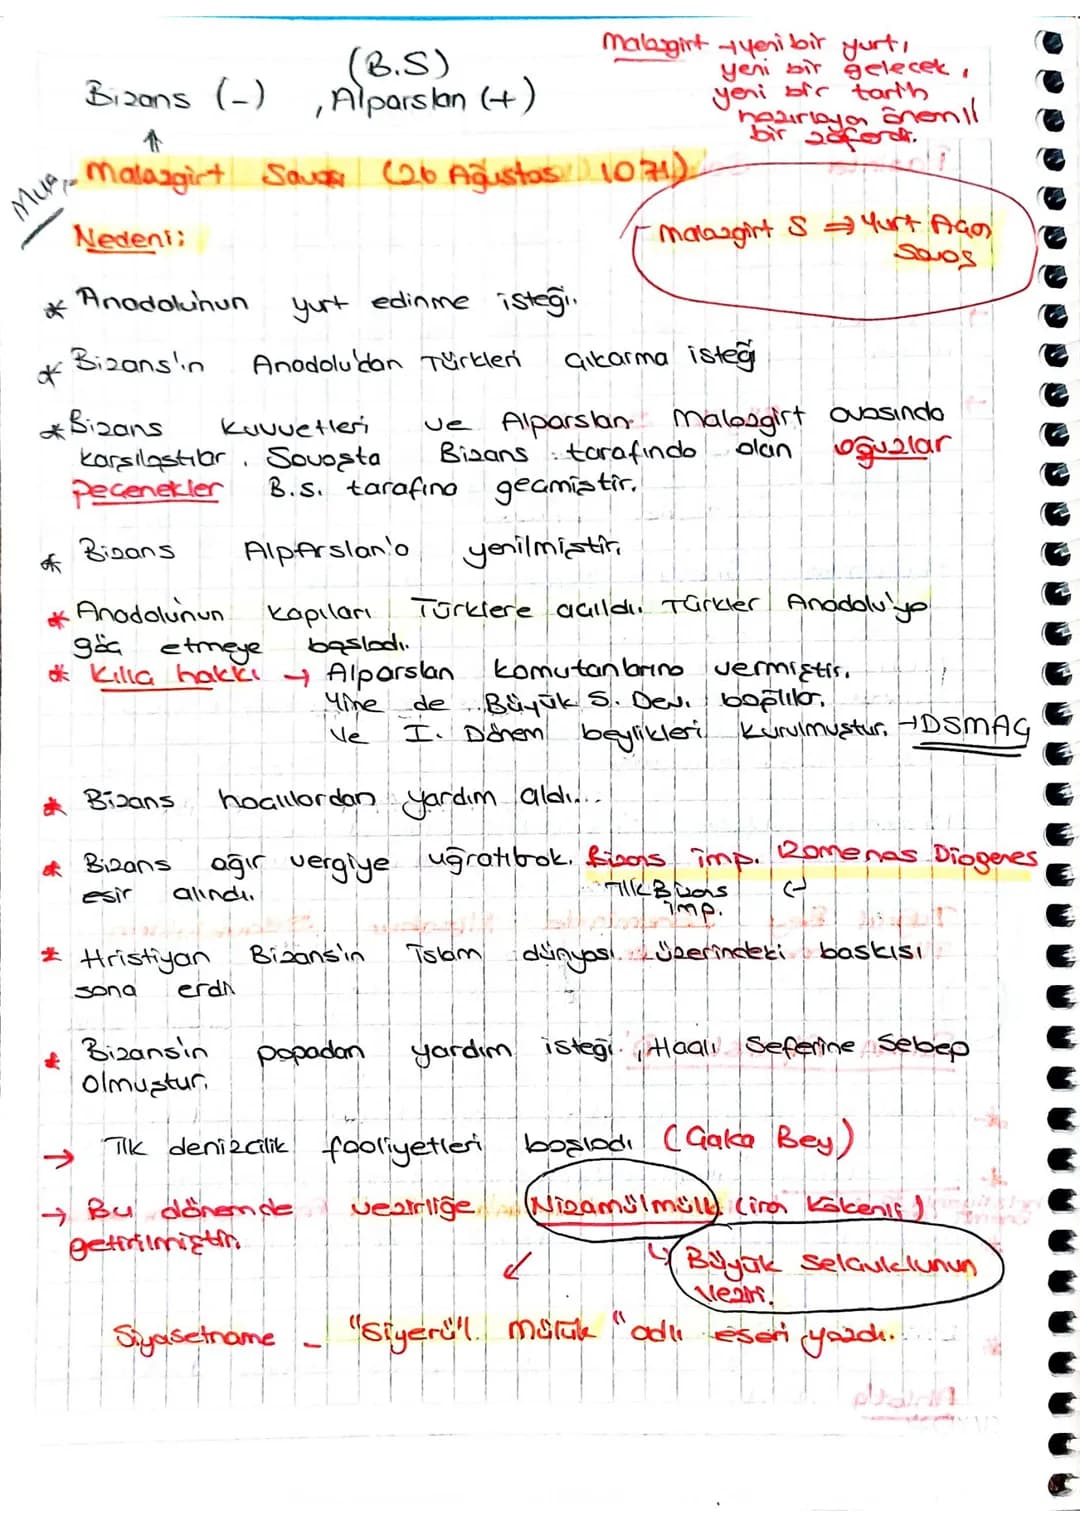 (B.S)
Bizans (-) , Alparslan (+)
Malazgirt → yeni bir yurt,
yeni bir gelecek,
yeni bir tarih
hazırlayan önemli
bir zaferdir.
Malazgirt Savaşı (26 Ağustos 1071)
Nedeni:
Malazgirt S ⇒ Yurt Açan
Savaş
* Anadolu'nun yurt edinme isteği.
* Bizans'ın Anadolu'dan Türkleri çıkarma isteği
* Bizans kuvvetleri ve Alparslan Malazgirt ovasında
karşılaştılar. Savaşta Bizans tarafında olan oğuzlar
peçenekler B.S. tarafına geçmiştir.
* Bizans Alparslan'a yenilmiştir.
* Anadolu'nun kapıları Türklere açıldı. Türkler Anadolu'ya
göç etmeye başladı.
* Kılıç hakkı → Alparslan komutanlarına vermiştir.
Yine de Büyük S. Dev. bağlılar.
Ve I. Dönem beylikleri kurulmuştur. → DSMAÇ
* Bizans haçlılardan yardım aldı...
* Bizans ağır vergiye uğratılarak. Bizans imp. Romenas Diogenes
esir alındı. İlk Bizans
imp.
* Hristiyan Bizans'ın İslam dünyası üzerindeki baskısı
sona erdi
* Bizans'ın papadan yardım isteği, Haçlı Seferine Sebep
olmuştur.
→ İlk denizcilik faaliyetleri başladı (Çaka Bey)
→ Bu dönemde vezirliğe Nizamülmülk (iran kökenli)
getirilmiştir.
↳ Büyük Selçuklunun
Veziri.
Siyasetname - "Siyerü'l mülük" adlı eseri yazdı.